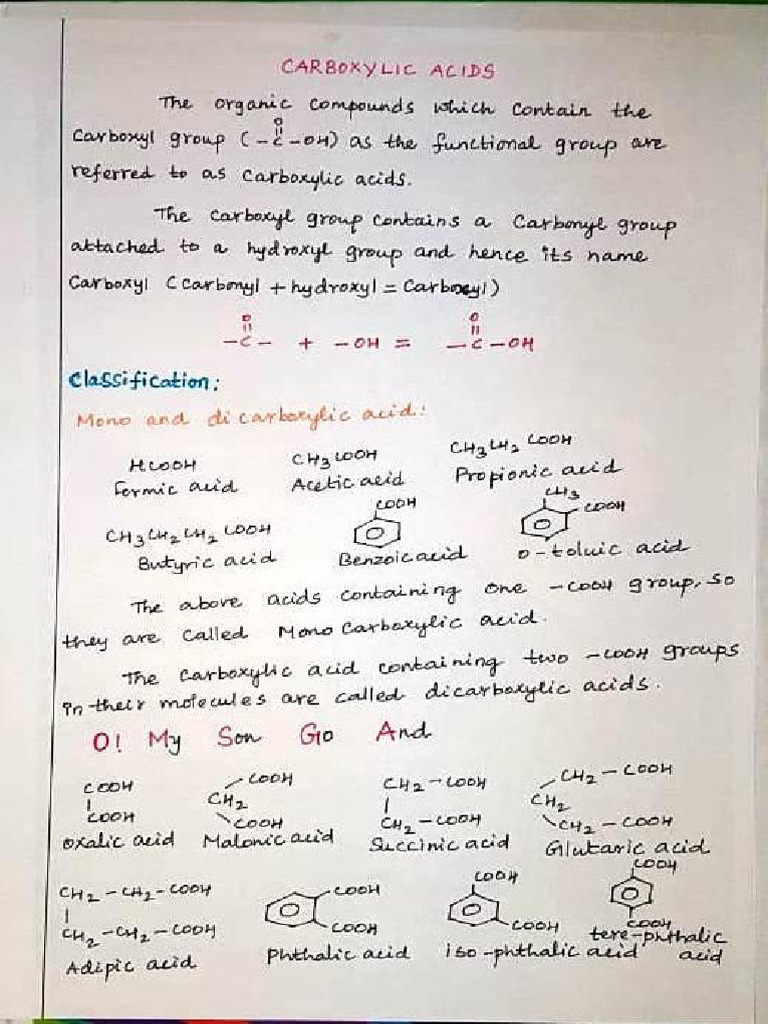 CARBOXYLIC ACIDS
The organic compounds which contain the
Carboxyl group (-C-OH) as the functional group are
O
referred to as carboxylic acids.
The carboxyl group contains a Carbonyl group
attached to a hydroxyl group and hence its name
Carboxyl (carbonyl + hydroxyl = Carboxyl)
O O
-C- + -OH = -C-OH
Classification:
Mono and dicarboxylic acid:
HCOOH CH3COOH CH3CH2COOH
Formic acid Acetic acid Propionic acid
COOH CH3 COOH
CH3CH2CH2COOH
Butyric acid Benzoic acid o-toluic acid
The above acids containing one -COOH group, so
they are called Mono Carboxylic acid.
The carboxylic acid containing two -COOH groups
in their molecules are called dicarboxylic acids.
O! My Son Go And
COOH COOH CH2-COOH CH2-COOH
CH2 CH2
COOH COOH CH2-COOH CH2-COOH
Oxalic acid Malonic acid Succinic acid Glutaric acid
CH2-CH2-COOH COOH COOH COOH
CH2-CH2-COOH COOH COOH COOH
Adipic acid Phthalic acid iso-phthalic acid tere-phthalic
acid